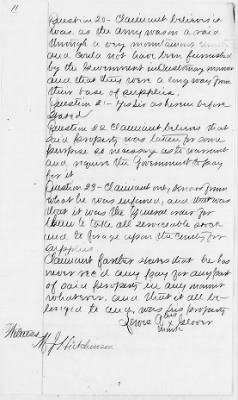 11
Question 20 - Claimant believes it
was. as the army was on a raid
through a very mountainous country
and could not have been furnished
by the Government in the ordinary manner
and that they were a long way from
their base of supplies.
Question 21 - Yes as herein before
stated
Question 22 Claimant believes that
said property was taken for some
purpose so necessary as to warrant
and require the Government to pay
for it
Question 23 - Claimant only knows from
what he was informed, and that was
that it was the General order for
them to take all serviceable stock
and to forage upon the country for
supplies.
Claimant further states that he has
never rec'd any pay for any part
of said property in any manner
whatever. and that it all be-
longed to and was his property
his
Lewis A x
mark
Witness
M J Hutchinson